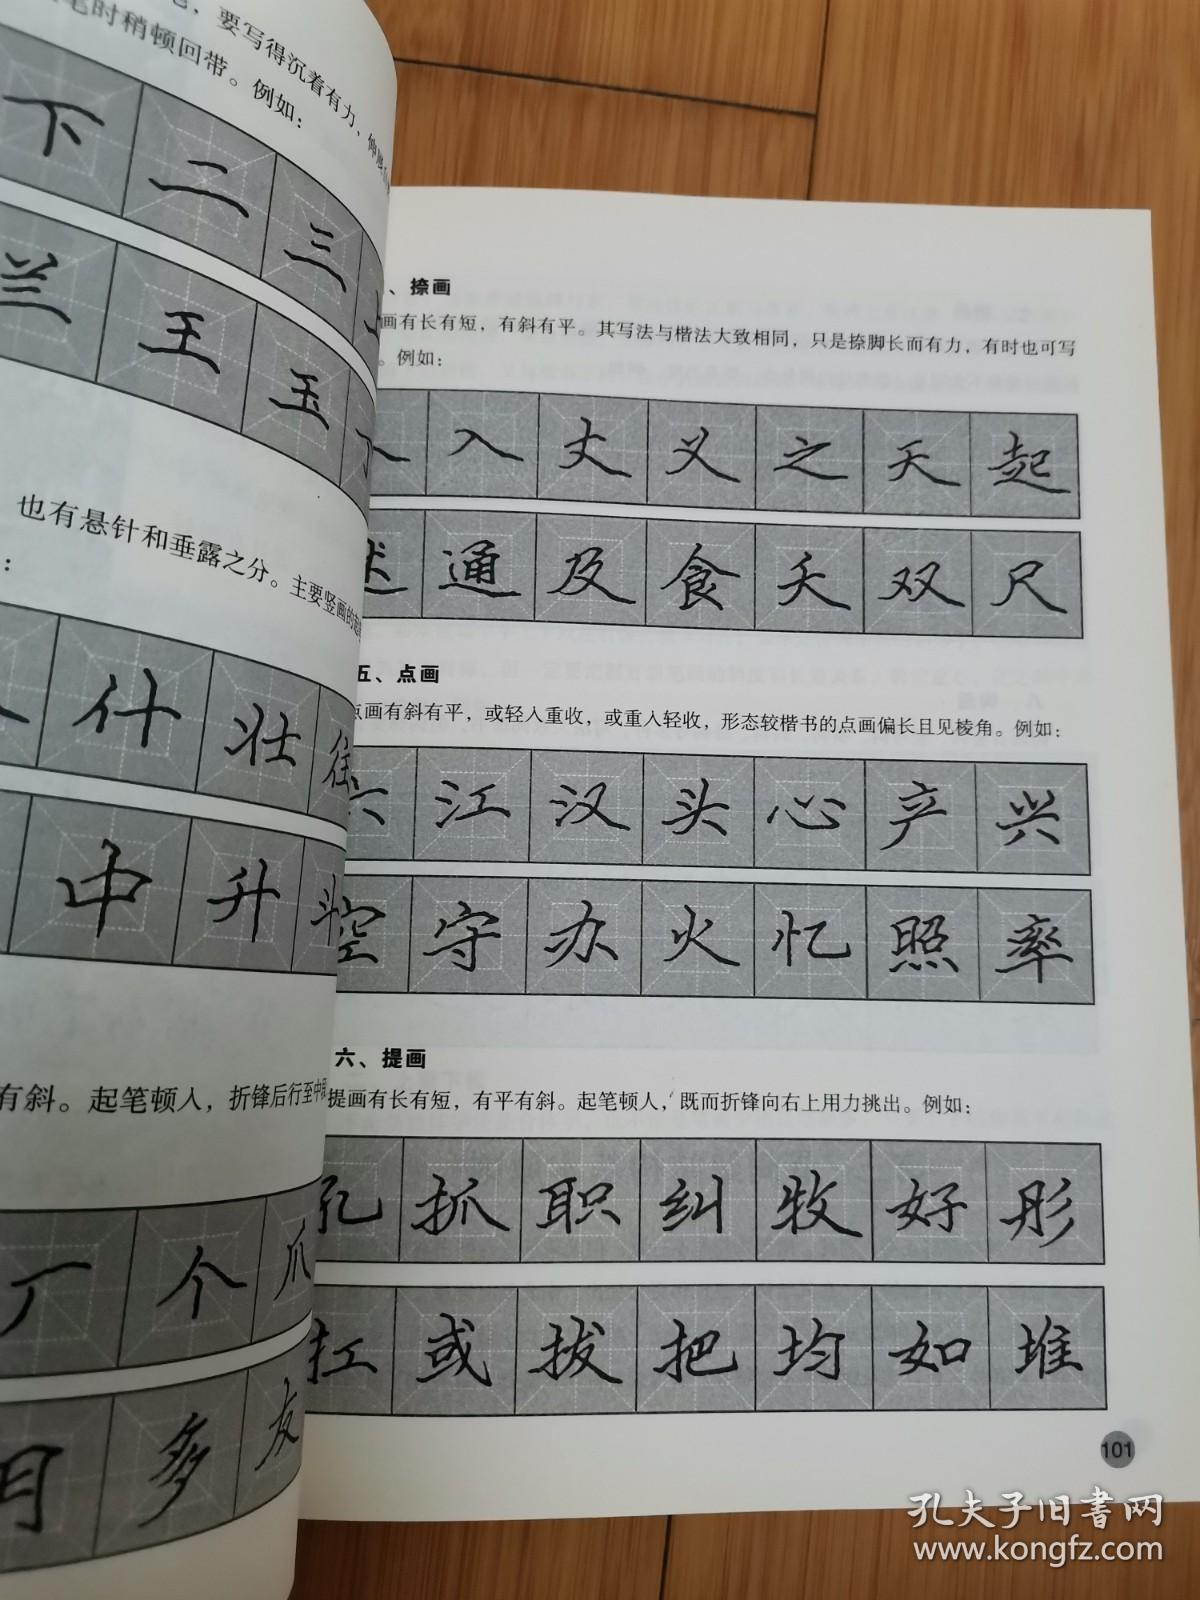 要写得沉着有力、
笔时稍顿回带。例如：
下 二 三
兰 王 玉
也有悬针和垂露之分。主要竖画的
：
什 壮 往
中 升 斗
有斜。起笔顿人，折锋后行至中
丁 个 爪
月 多 友
、捺画
画有长有短，有斜有平。其写法与楷法大致相同，只是捺脚长而有力，有时也可写
。例如：
入 丈 义 之 天 起
述 通 及 食 夭 双 尺
五、点画
点画有斜有平，或轻入重收，或重入轻收，形态较楷书的点画偏长且见棱角。例如：
六 江 汉 头 心 产 兴
空 守 办 火 忆 照 率
六、提画
提画有长有短，有平有斜。起笔顿人，既而折锋向右上用力挑出。例如：
孔 抓 职 纠 牧 好 彤
扛 或 拔 把 均 如 堆
101
孔夫子旧书网
www.kongfz.com